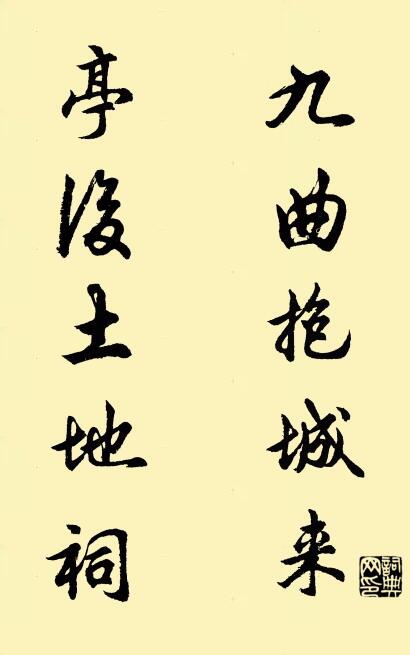 九曲抱城来
亭後土地祠
詞典網印